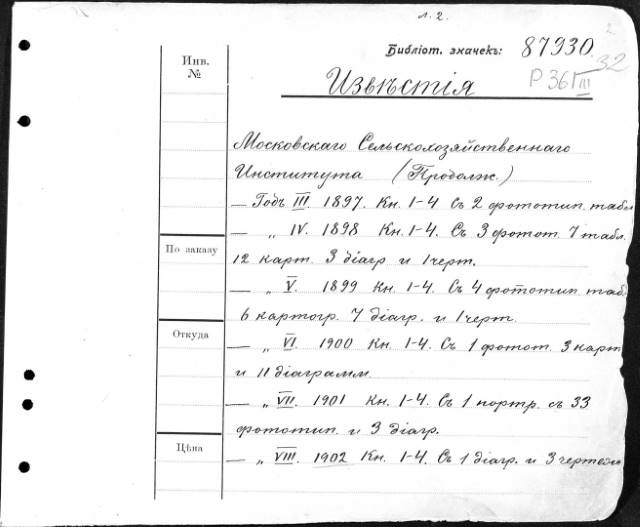 л. 2.
Библіот. значекъ: 87930
Инв.
№
Извѣстія
Р 361/III
32
Московскаго Сельскохозяйственнаго
Института (Продолж.)
— Годъ III. 1897. Кн. 1-4 Съ 2 фототип. табл
— „ IV. 1898 Кн. 1-4. Съ 3 фотот. 7 табл.
По заказу
12 карт. 3 діагр. и 1 черт.
— „ V. 1899 Кн. 1-4. Съ 4 фототип. табл.
6 картогр. 7 діагр. и 1 черт.
Откуда
— „ VI. 1900 Кн. 1-4. Съ 1 фотот. 3 карт
и 11 діаграмм.
— „ VII. 1901 Кн. 1-4. Съ 1 портр. съ 33
фототип. и 3 діагр.
Цѣна
— „ VIII. 1902 Кн. 1-4. Съ 1 діагр. и 3 чертежами